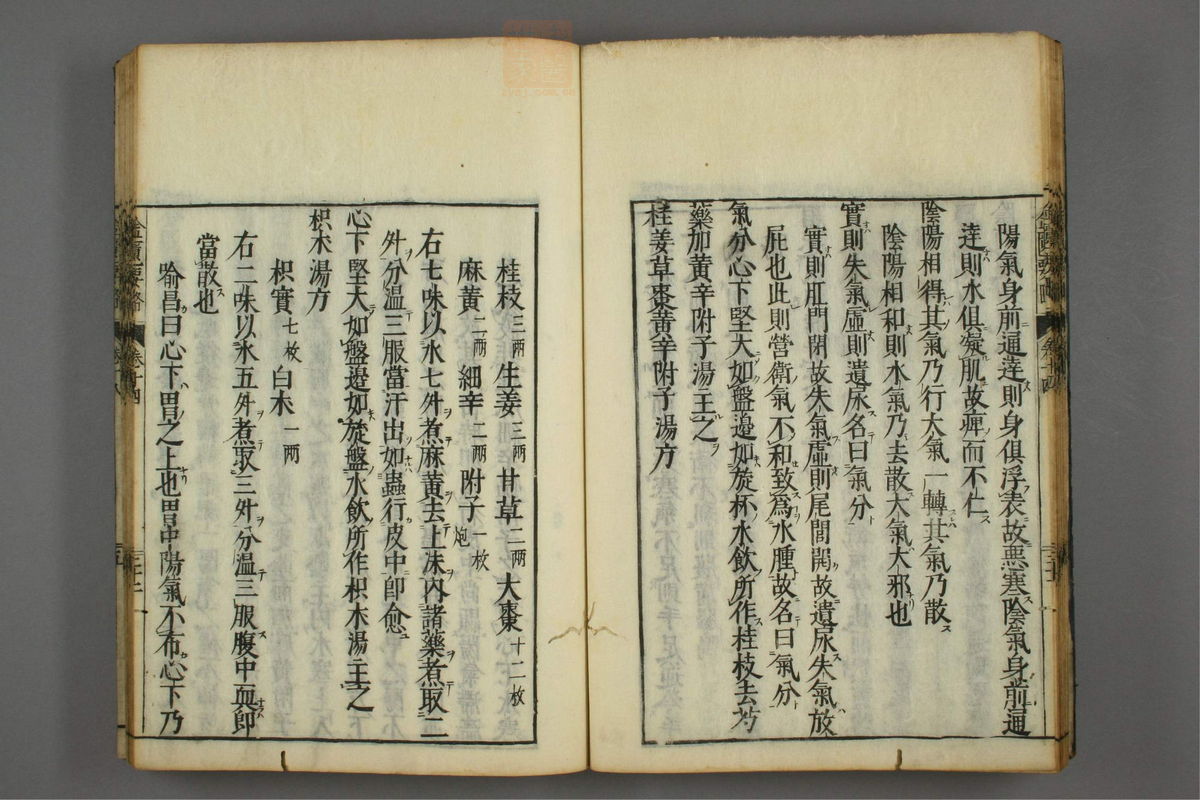 陽氣身前通達則身俱浮表故惡寒陰氣身前通
達則水俱凝肌故痺而不仁
陰陽相得其氣乃行大氣一轉其氣乃散
陰陽相和則水氣乃去散大氣大邪也
實則失氣虛則遺尿名曰氣分
實則肛門閉故失氣虛則尾閭開故遺尿失氣放
屁也此則營衛氣不和致為水腫故名曰氣分
氣分心下堅大如盤邊如旋杯水飲所作桂枝去芍
藥加黃辛附子湯主之
桂姜草棗黃辛附子湯方
桂枝三兩生姜三兩甘草二兩大棗十二枚
麻黃二兩細辛二兩附子一枚炮
右七味以水七升煮麻黃去上沫內諸藥煮取二
升分溫三服當汗出如蟲行皮中即愈
心下堅大如盤邊如旋盤水飲所作枳朮湯主之
枳朮湯方
枳實七枚白朮一兩
右二味以水五升煮取三升分溫三服腹中耎即
當散也
喻昌曰心下胃之上也胃中陽氣不布心下乃